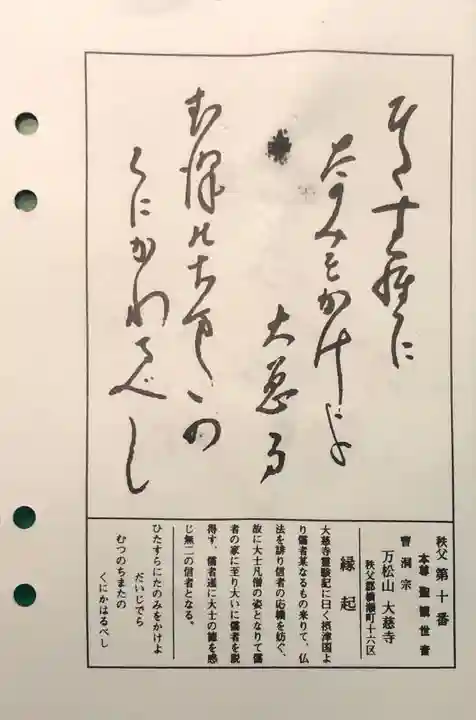 ひたす羅に
たのみをかけよ
大慈寺
むつのちまたの
くにかわるべし
秩父 第十番
本尊 聖観世音
曹洞宗
万松山 大慈寺
秩父郡横瀬町十六区
縁起
大慈寺霊験記に曰く摂津国よ
り儒者某なるもの来りて、仏
法を誹り信者の応機を妨ぐ、
故に大士凡僧の姿となりて儒
者の家に至り大いに儒者を説
得す。儒者遂に大士の徳を感
じ無二の信者となる。
ひたすらにたのみをかけよ
だいじでら
むつのちまたの
くにかはるべし